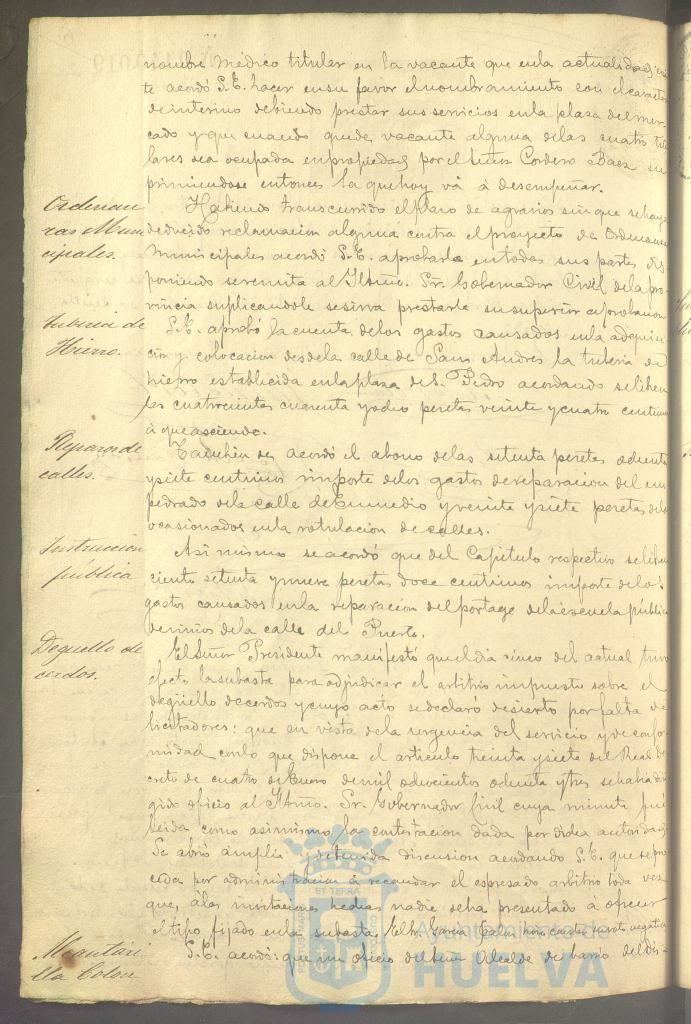 nombre médico titular en la vacante que en la actualidad existe
te acordó S.E. hacer en su favor el nombramiento con el caracter
de interino debiendo prestar sus servicios en la plaza del mer-
cado y que cuando quede vacante alguna de las cuatro titu
lares sea ocupada en propiedad por el Señor Cordero Baez su
primiendose entonces la que hoy vá á desempeñar.
Ordenan
zas Muni
cipales.
Habiendo transcurrido el plazo de agravios sin que se haya
deducido reclamacion alguna contra el proyecto de Ordenanzas
Municipales acordó S.E. aprobarlo en todas sus partes dis
poniendo se remita al Iltmo. Sr. Gobernador Civil de la pro-
vincia suplicandole se sirva prestarle su superior aprobacion
Tuberia de
Hierro.
S.E. aprobó la cuenta de los gastos causados en la adquisi-
cion y colocacion desde la calle de San Andres la tuberia de
hierro establecida en la plaza de S. Pedro acordando se libren
las cuatrocientas cuarenta y ocho pesetas veinte y cuatro centimos
á que asciende.
Reparos de
calles.
Tambien se acordó el abono de las setenta pesetas ochenta
y siete centimos importe de los gastos de reparacion del em
pedrado de la calle de Enmedio y veinte y siete pesetas de los
ocasionados en la rotulacion de calles.
Instruccion
pública
Asi mismo se acordó que del Capitulo respectivo se libren
ciento setenta y nueve pesetas doce centimos importe de los
gastos causados en la reparacion del portage de la escuela pública
de niños de la calle del Puerto.
Deguello de
cerdos.
El Señor Presidente manifestó que el dia cinco del actual tuvo
efecto la subasta para adjudicar el arbitrio impuesto sobre el
degüello de cerdos y cuyo acto se declaró desierto por falta de
licitadores: que en vista de la urgencia del servicio y de confor
midad con lo que dispone el articulo treinta y siete del Real De
creto de cuatro de Enero de mil ochocientos ochenta y tres se habia diri
gido oficio al Iltmo. Sr. Gobernador Civil cuya minuta fué
leida como asimismo la contestacion dada por dicha autoridad.
Se abrió amplia y detenida discusion acordando S.E. que se pro
ceda por administracion á recaudar el espresado arbitrio toda vez
que, á las invitaciones hechas nadie se ha presentado á ofrecer
el tipo fijado en la subasta. El Sr. Garcia hizo constar su voto negativo
Alcantari
lla Colon
S.E. acordó: que un oficio del Señor Alcalde de barrio del Dis-
PORTUS MARIS
ET TERRÆ
CUSTODIA
Ayuntamiento de
HUELVA